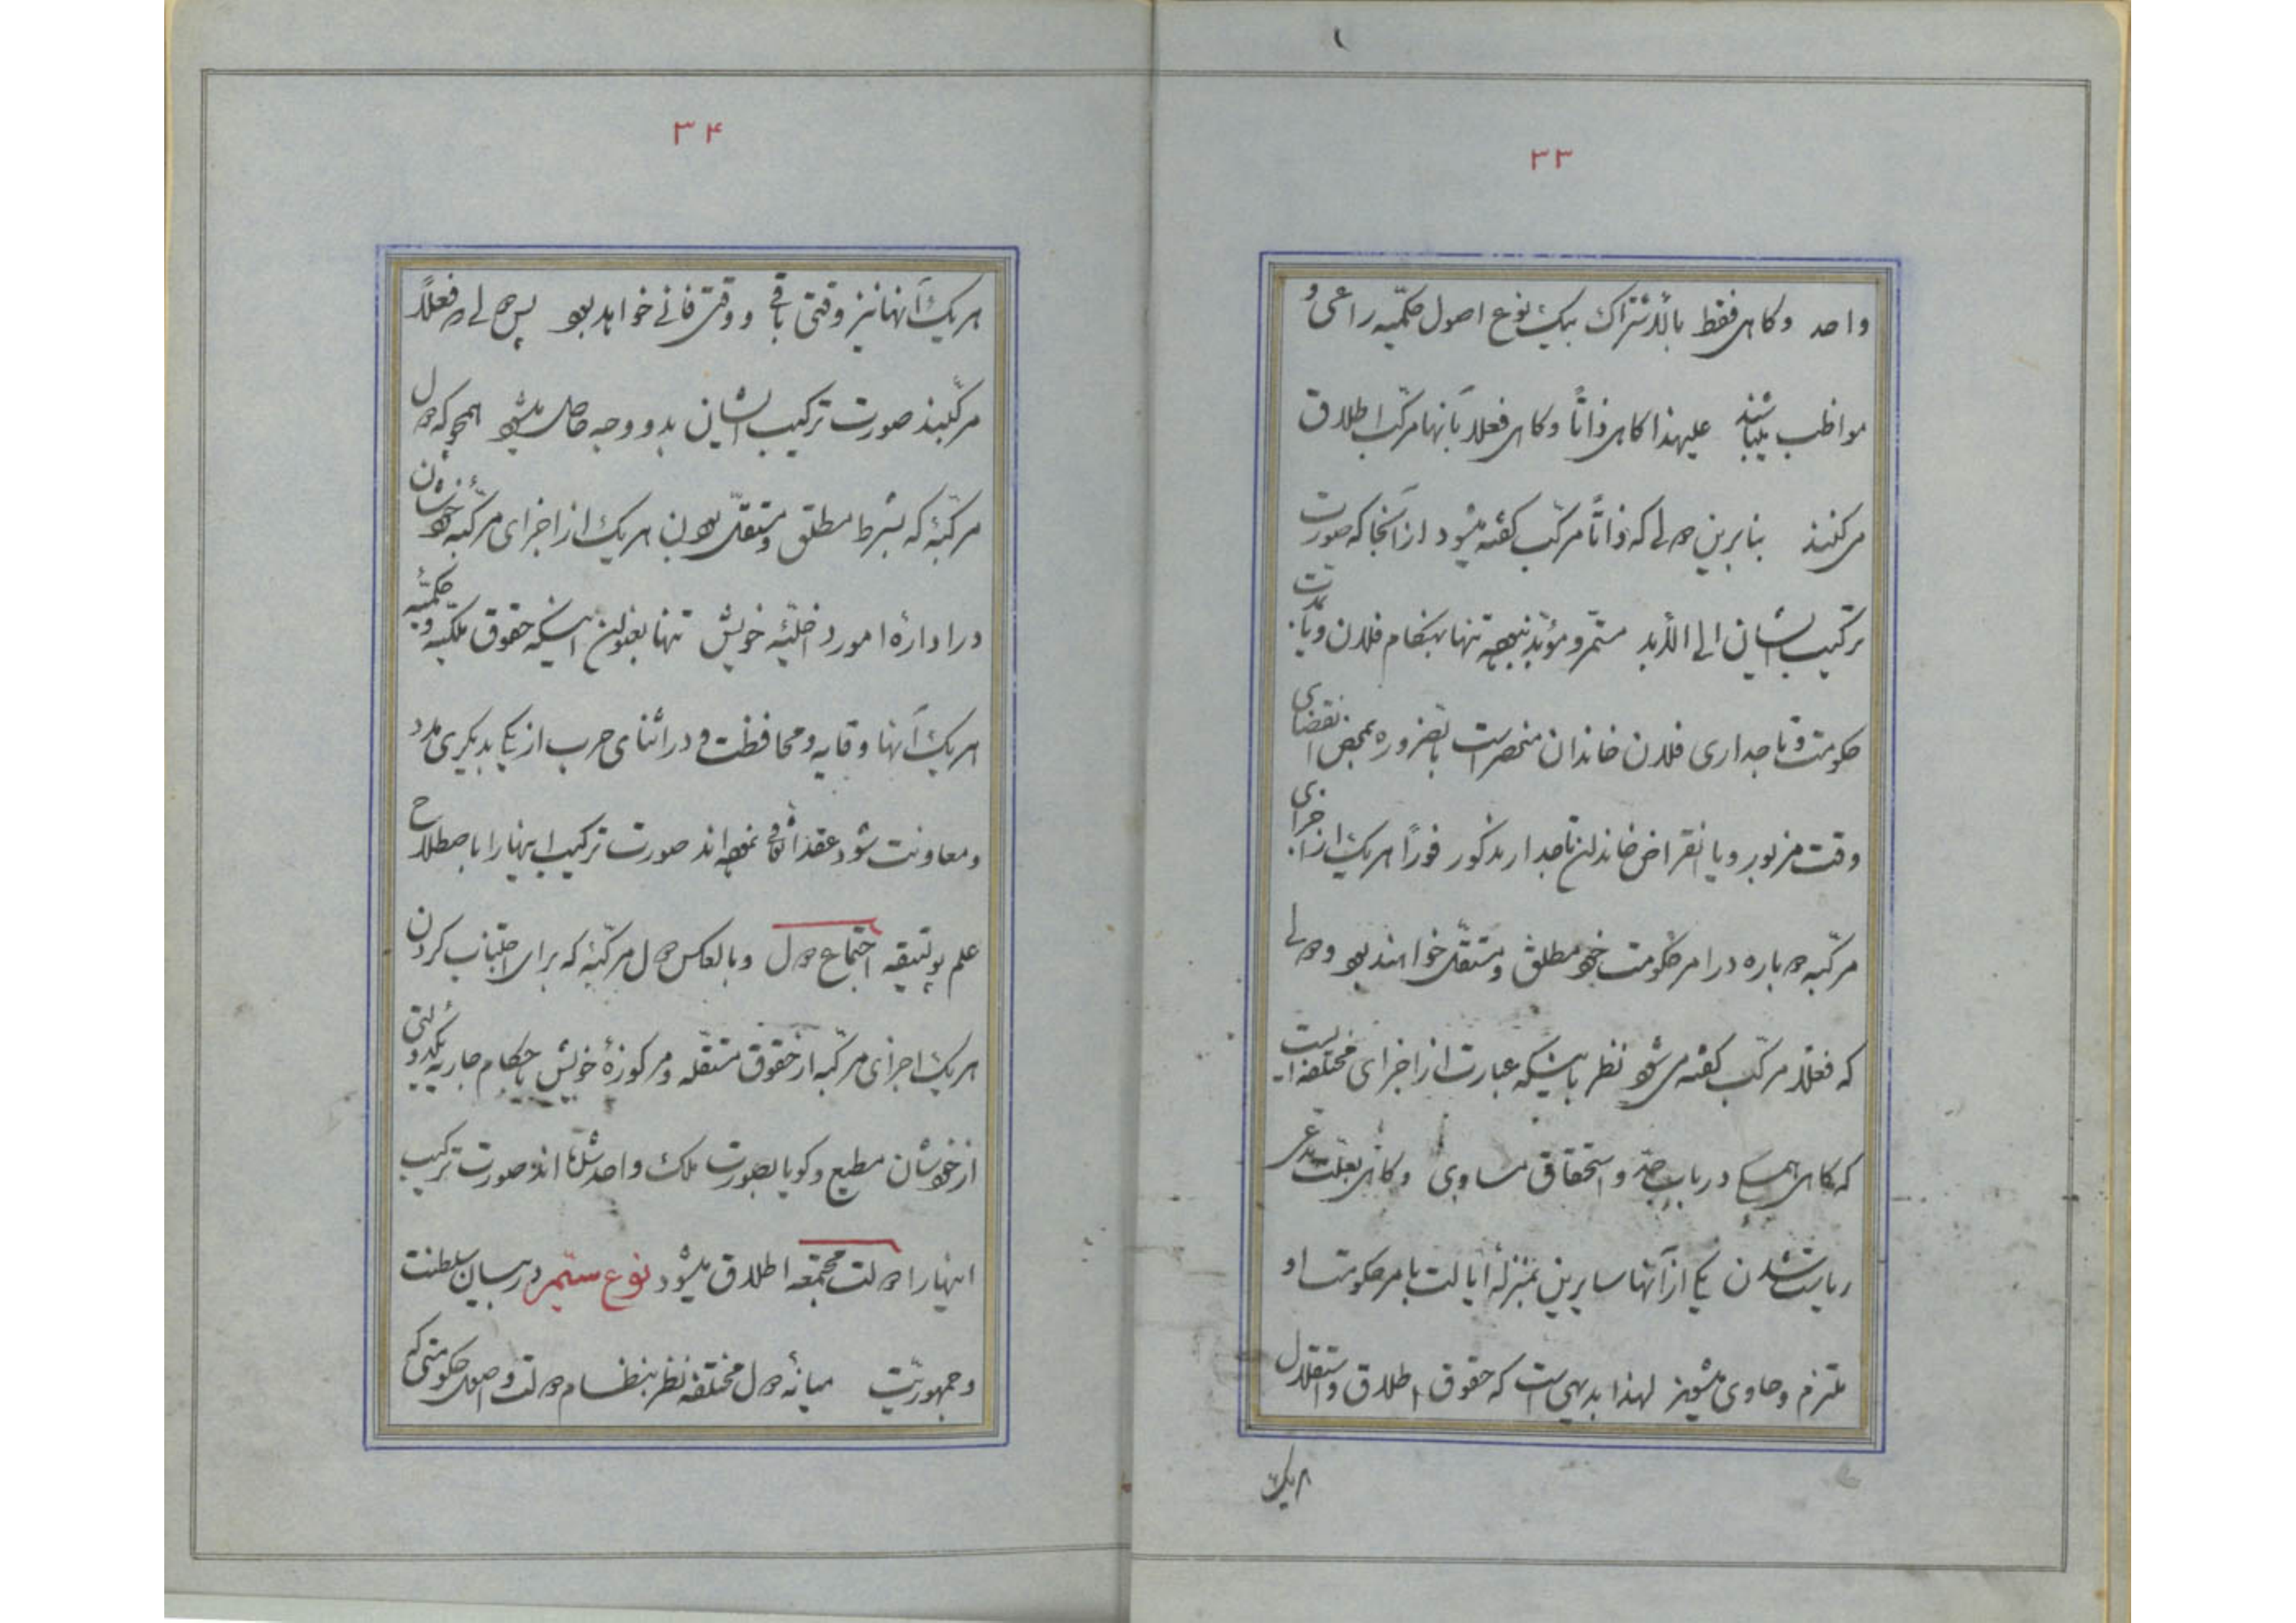 ۳۳
واحد وکاهی فقط بالاشتراک بیک نوع اصول حکمیّه راعی و
مواظب میباشند علیهذا کاهی ذاتاً وکاهی فعلاً بآنها مرکّب اطلاق
میکنند بنابرین دولی که ذاتاً مرکّب کفته میشود ازآنجا که صورت
ترکیب ایشان الی الأبد مستمر و مؤبّد نبوده تنها بهنکام فلان ویا بمدّت
حکومت وتاجداری فلان خاندان منحصر است بالضروره بمحض انقضای
وقت مزبور ویا انقراض خاندان تاجدار مذکور فوراً هریک از اجزای
مرکّبه دوباره در امر حکومت خود مطلق ومستقلّ خواهند بود ودولی
که فعلاً مرکّب کفته می شود نظر باینکه عبارت از اجزای مختلفه است
که کاهی همه در باب حقّ و استحقاق مساوی وکاهی بعلّت مدّعی
ریاست شدن یکی ازآنها سایرین بمنزلۀ ایالت بامر حکومت او
ملتزم وحاوی میشوند لهذا بدیهی است که حقوق اطلاق واستقلال
هریک
۳۴
هریک آنها نیز وقتی باقی و وقتی فانی خواهد بود پس دولی که فعلاً
مرکّبند صورت ترکیب ایشان بدو وجه حاصل میشود همچو که دول
مرکّبۀ که بشرط مطلق ومستقلّ بودن هریک از اجزای مرکّبۀ خودشان
در ادارۀ امور داخلیّۀ خویش تنها بعنوان اینکه حقوق ملکیّه وحکمیّۀ
هریک آنها وقایه ومحافظت و در اثنای حرب از یکی بدیکری مدد
ومعاونت شود عقد اتّفاق نموده اند صورت ترکیب اینها را باصطلاح
علم پولتیقه اجتماع دول وبالعکس دول مرکّبۀ که برای اجتناب کردن
هریک اجزای مرکّبه از حقوق مستقلّه ومرکوزۀ خویش باحکام جاریۀ یکدولتی
از خودشان مطیع وکویا بصورت ملک واحد شده اند صورت ترکیب
اینها را دولت مجتمعه اطلاق میشود نوع سیّم در بیان سلطنت
وجمهوریّت میانۀ دول مختلفه نظر بنظام دولت و اصول حکومتی که